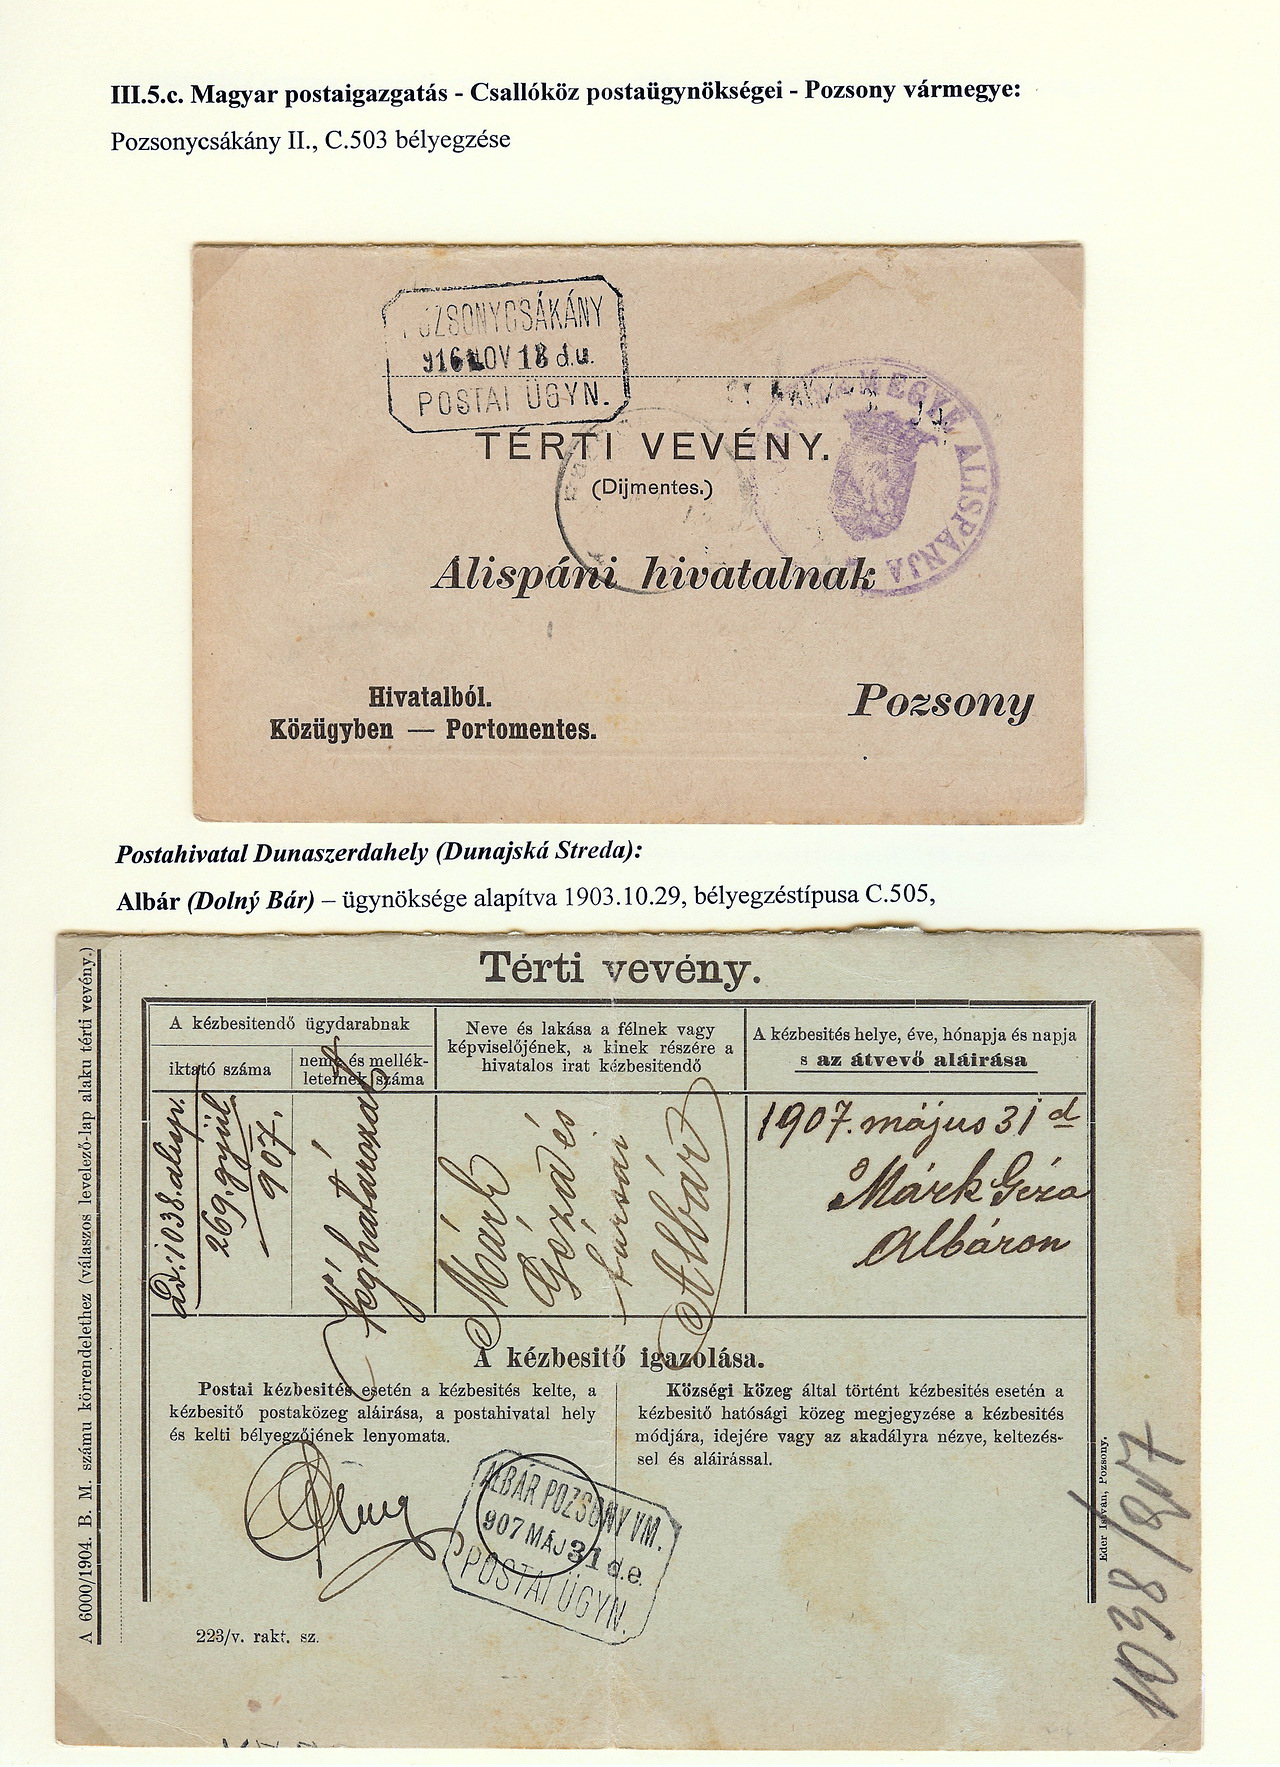 III.5.c. Magyar postaigazgatás - Csallóköz postaügynökségei - Pozsony vármegye:
Pozsonycsákány II., C.503 bélyegzése
POZSONYCSÁKÁNY
916 NOV 18 d.u.
POSTAI ÜGYN.
MEGYE ALISPÁNJA
TÉRTI VEVÉNY.
(Dijmentes.)
Alispáni hivatalnak
Hivatalból.
Közügyben — Portomentes.
Pozsony
Postahivatal Dunaszerdahely (Dunajská Streda):
Albár (Dolný Bár) – ügynöksége alapítva 1903.10.29, bélyegzéstípusa C.505,
A 6000/1904. B. M. számu körrendelethez (válaszos levelező-lap alaku térti vevény.)
Térti vevény.
A kézbesitendő ügydarabnak
iktató száma
neme és mellék-
leteinek száma
Neve és lakása a félnek vagy
képviselőjének, a kinek részére a
hivatalos irat kézbesitendő
A kézbesités helye, éve, hónapja és napja
s az átvevő aláirása
ad: 1038. alisp.
269. gyül.
907.
Véghatározat
Márk
Géza és
társai
Albár
1907. május 31 d
Márk Géza
Albáron
A kézbesitő igazolása.
Postai kézbesités esetén a kézbesités kelte, a
kézbesitő postaközeg aláirása, a postahivatal hely
és kelti bélyegzőjének lenyomata.
Községi közeg által történt kézbesités esetén a
kézbesitő hatósági közeg megjegyzése a kézbesités
módjára, idejére vagy az akadályra nézve, keltezés-
sel és aláirással.
ALBÁR POZSONY VM.
907 MÁJ 31 d.e.
POSTAI ÜGYN.
223/v. rakt. sz.
Eder István, Pozsony.
1038/907